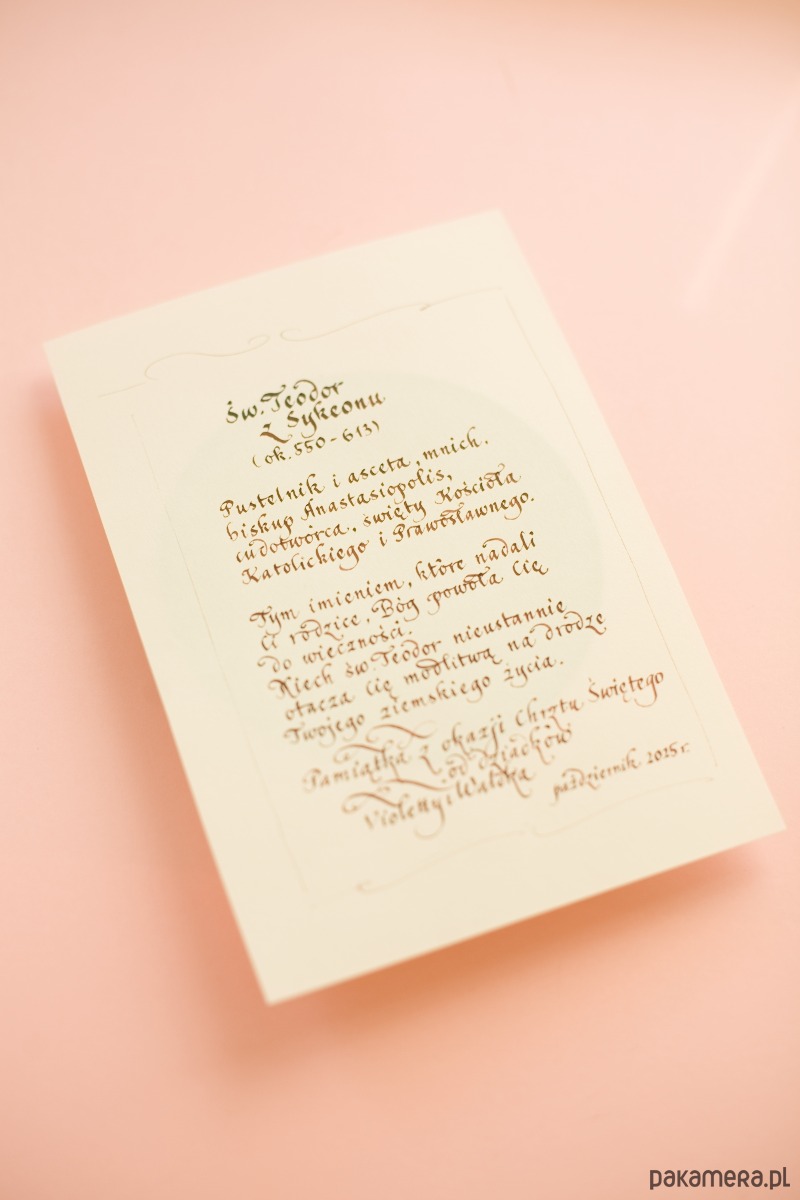 Św. Teodor
z Sykeonu
(ok. 550 - 613)
Pustelnik i asceta, mnich,
biskup Anastasiopolis,
cudotwórca, święty Kościoła
Katolickiego i Prawosławnego.
Tym imieniem, które nadali
Ci rodzice, Bóg powoła Cię
do wieczności.
Niech św. Teodor nieustannie
otacza Cię modlitwą na drodze
Twojego ziemskiego życia.
Pamiątka z okazji Chrztu Świętego
od dziadków
Violetty i Waldka
październik 2025 r.
pakamera.pl